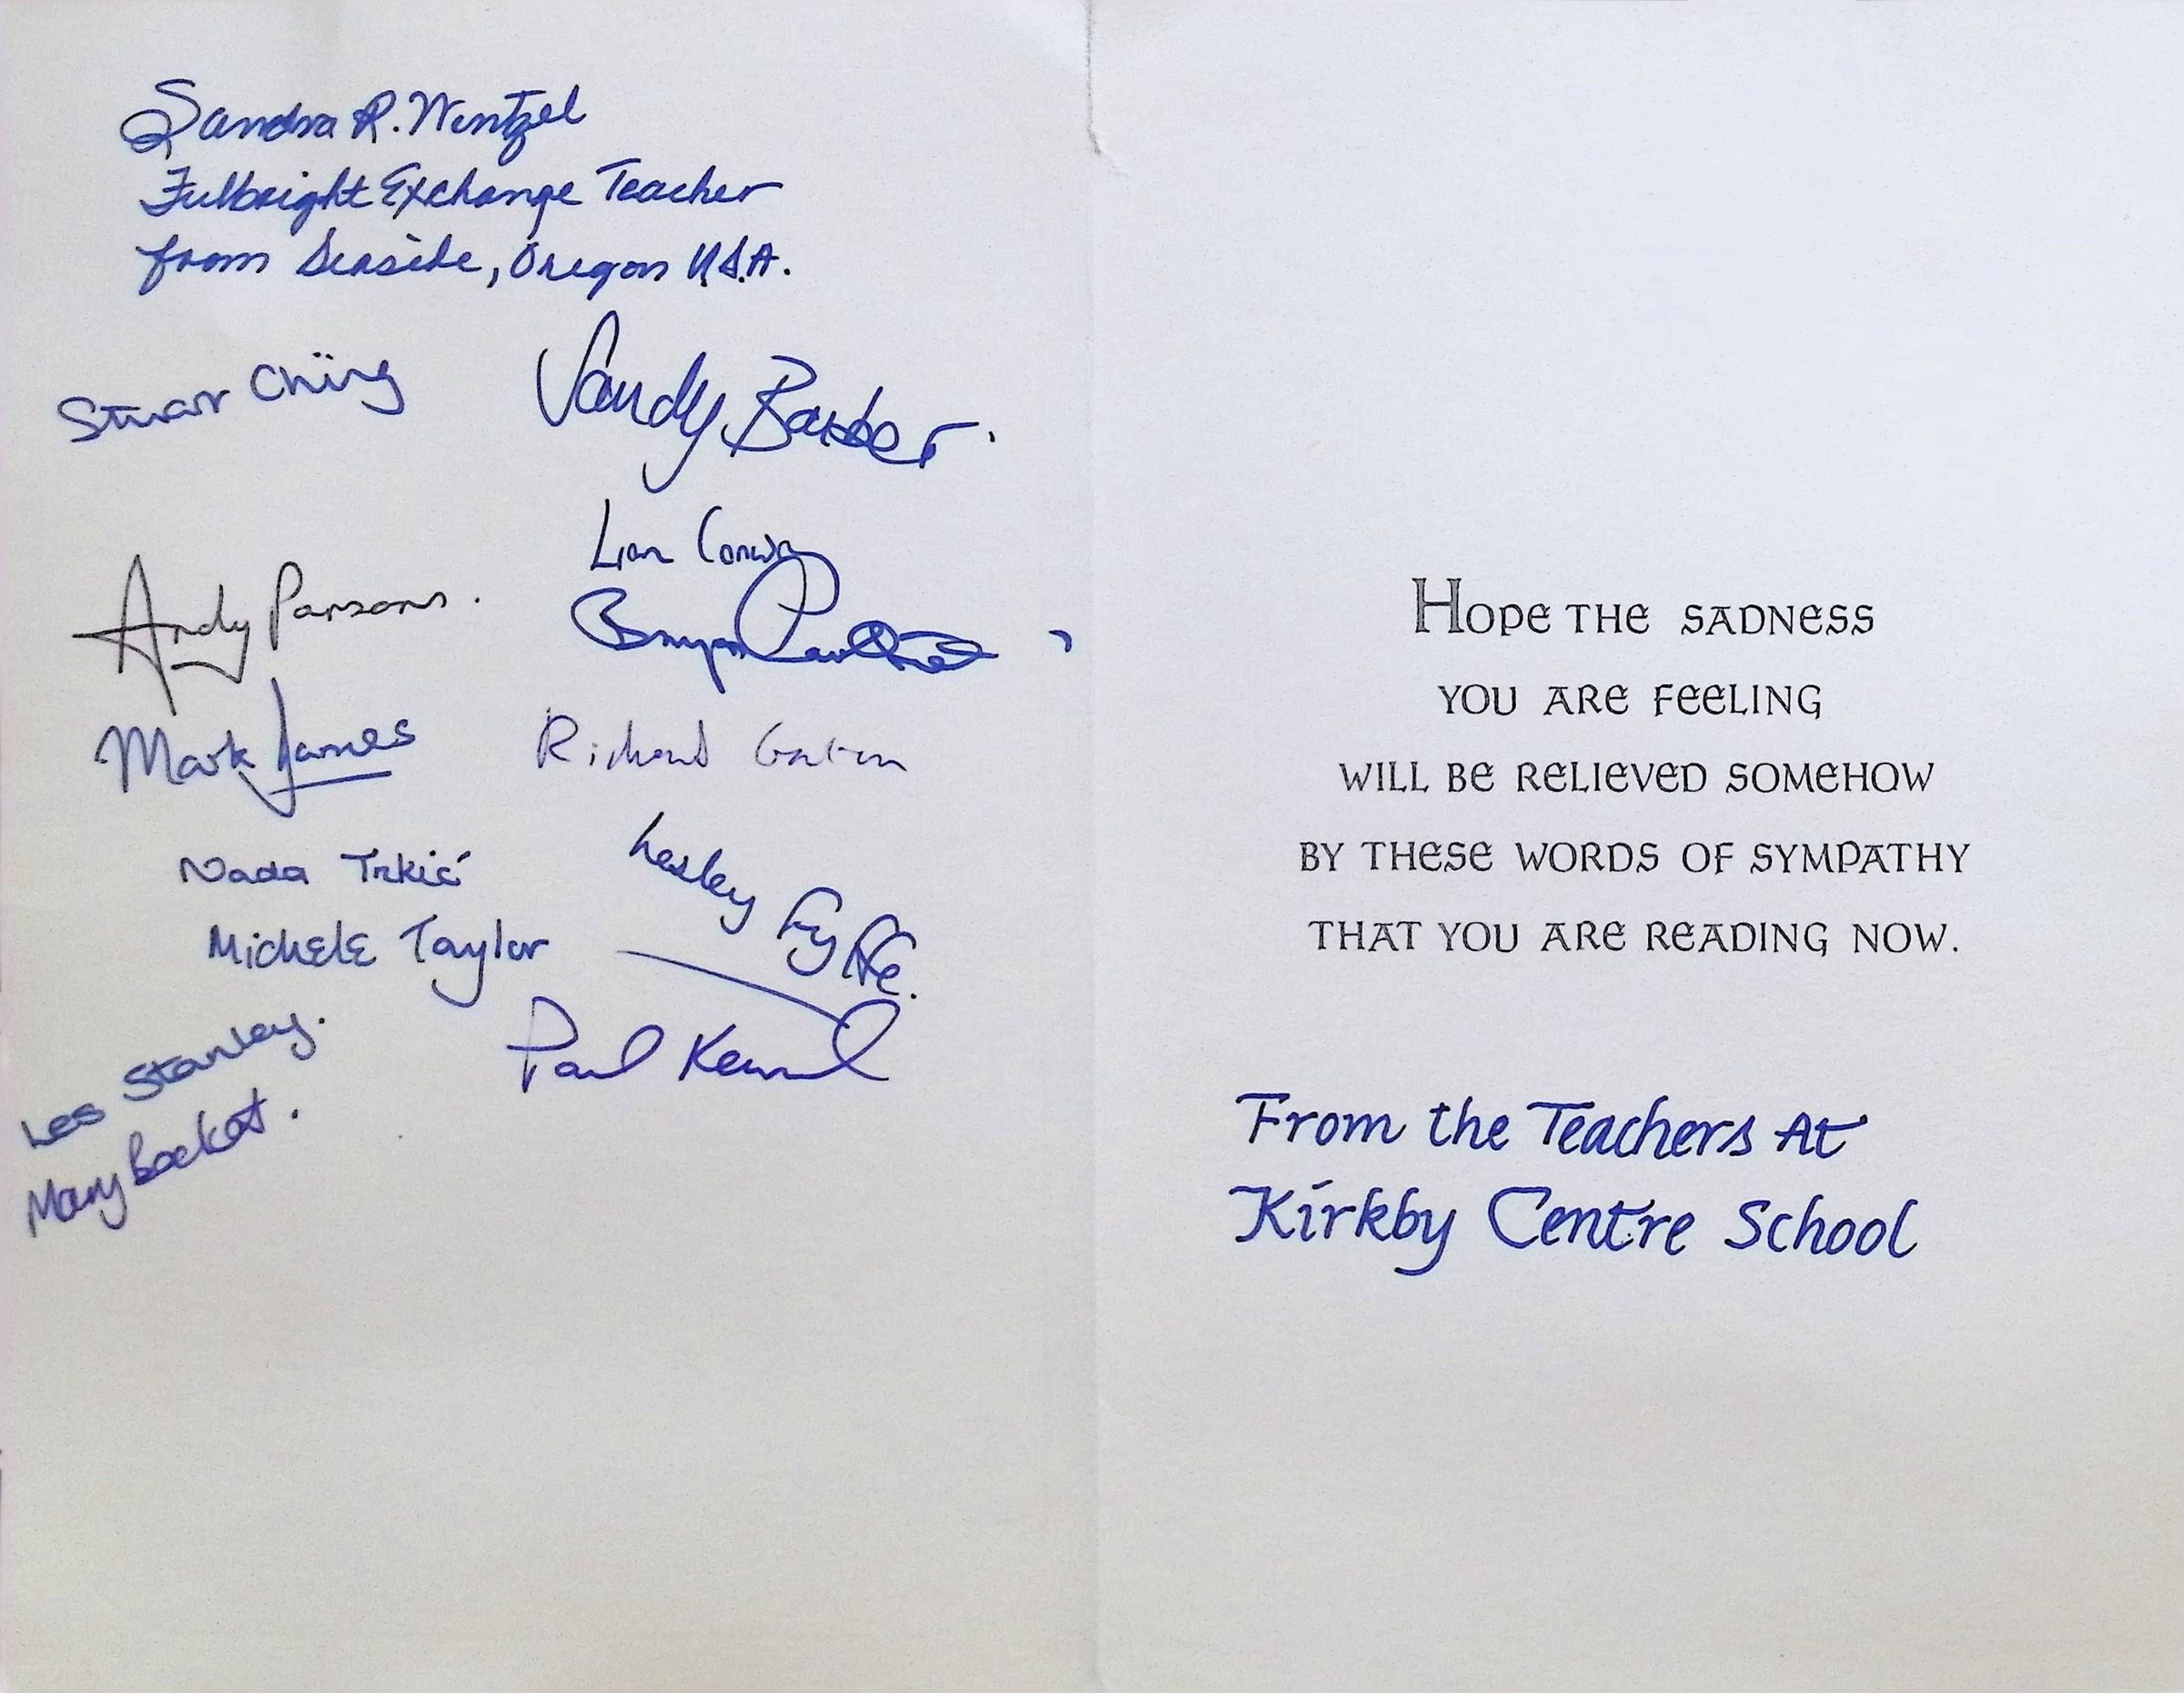 Sandra R. Wentzel
Fulbright Exchange Teacher
from Seaside, Oregon U.S.A.
Stuart Ching
Sandy Barber.
Liam Conway
Andy Parsons.
Bryan
Mark James
Richard
Nada Trkić
Lesley Fyffe.
Michele Taylor
Les Stanley.
Paul
Mary
HOPE THE SADNESS
YOU ARE FEELING
WILL BE RELIEVED SOMEHOW
BY THESE WORDS OF SYMPATHY
THAT YOU ARE READING NOW.
From the Teachers At
Kirkby Centre School